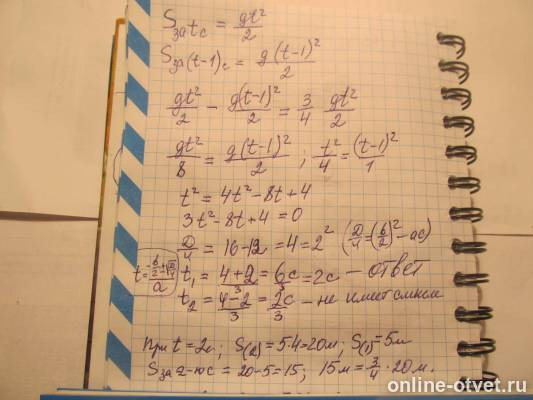 S за t c = gt²/2
S за (t-1) c = g(t-1)²/2
gt²/2 - g(t-1)²/2 = 3/4 gt²/2
gt²/8 = g(t-1)²/2 ; t²/4 = (t-1)²/1
t² = 4t² - 8t + 4
3t² - 8t + 4 = 0
D/4 = 16 - 12 = 4 = 2² (D/4 = (b/2)² - ac)
t = (-b/2 ± √(D/4))/a
t₁ = (4+2)/3 = 6c/3 = 2c - ответ
t₂ = (4-2)/3 = 2c/3 - не имеет смысла
При t = 2c; S(2) = 5·4 = 20м; S(1) = 5м
S за 2-юс = 20-5 = 15; 15м = 3/4 · 20м.
online-otvet.ru